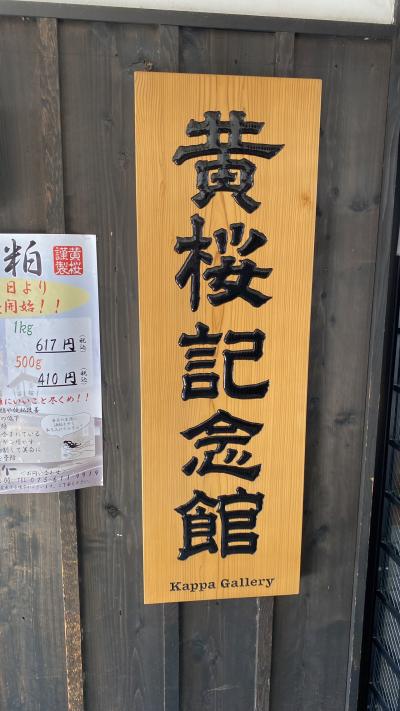 黄桜記念館
Kappa Gallery
粕
黄桜
謹製
日より
開始！！
1kg
617円(税込)
500g
410円(税込)
にいいこと尽くめ！！